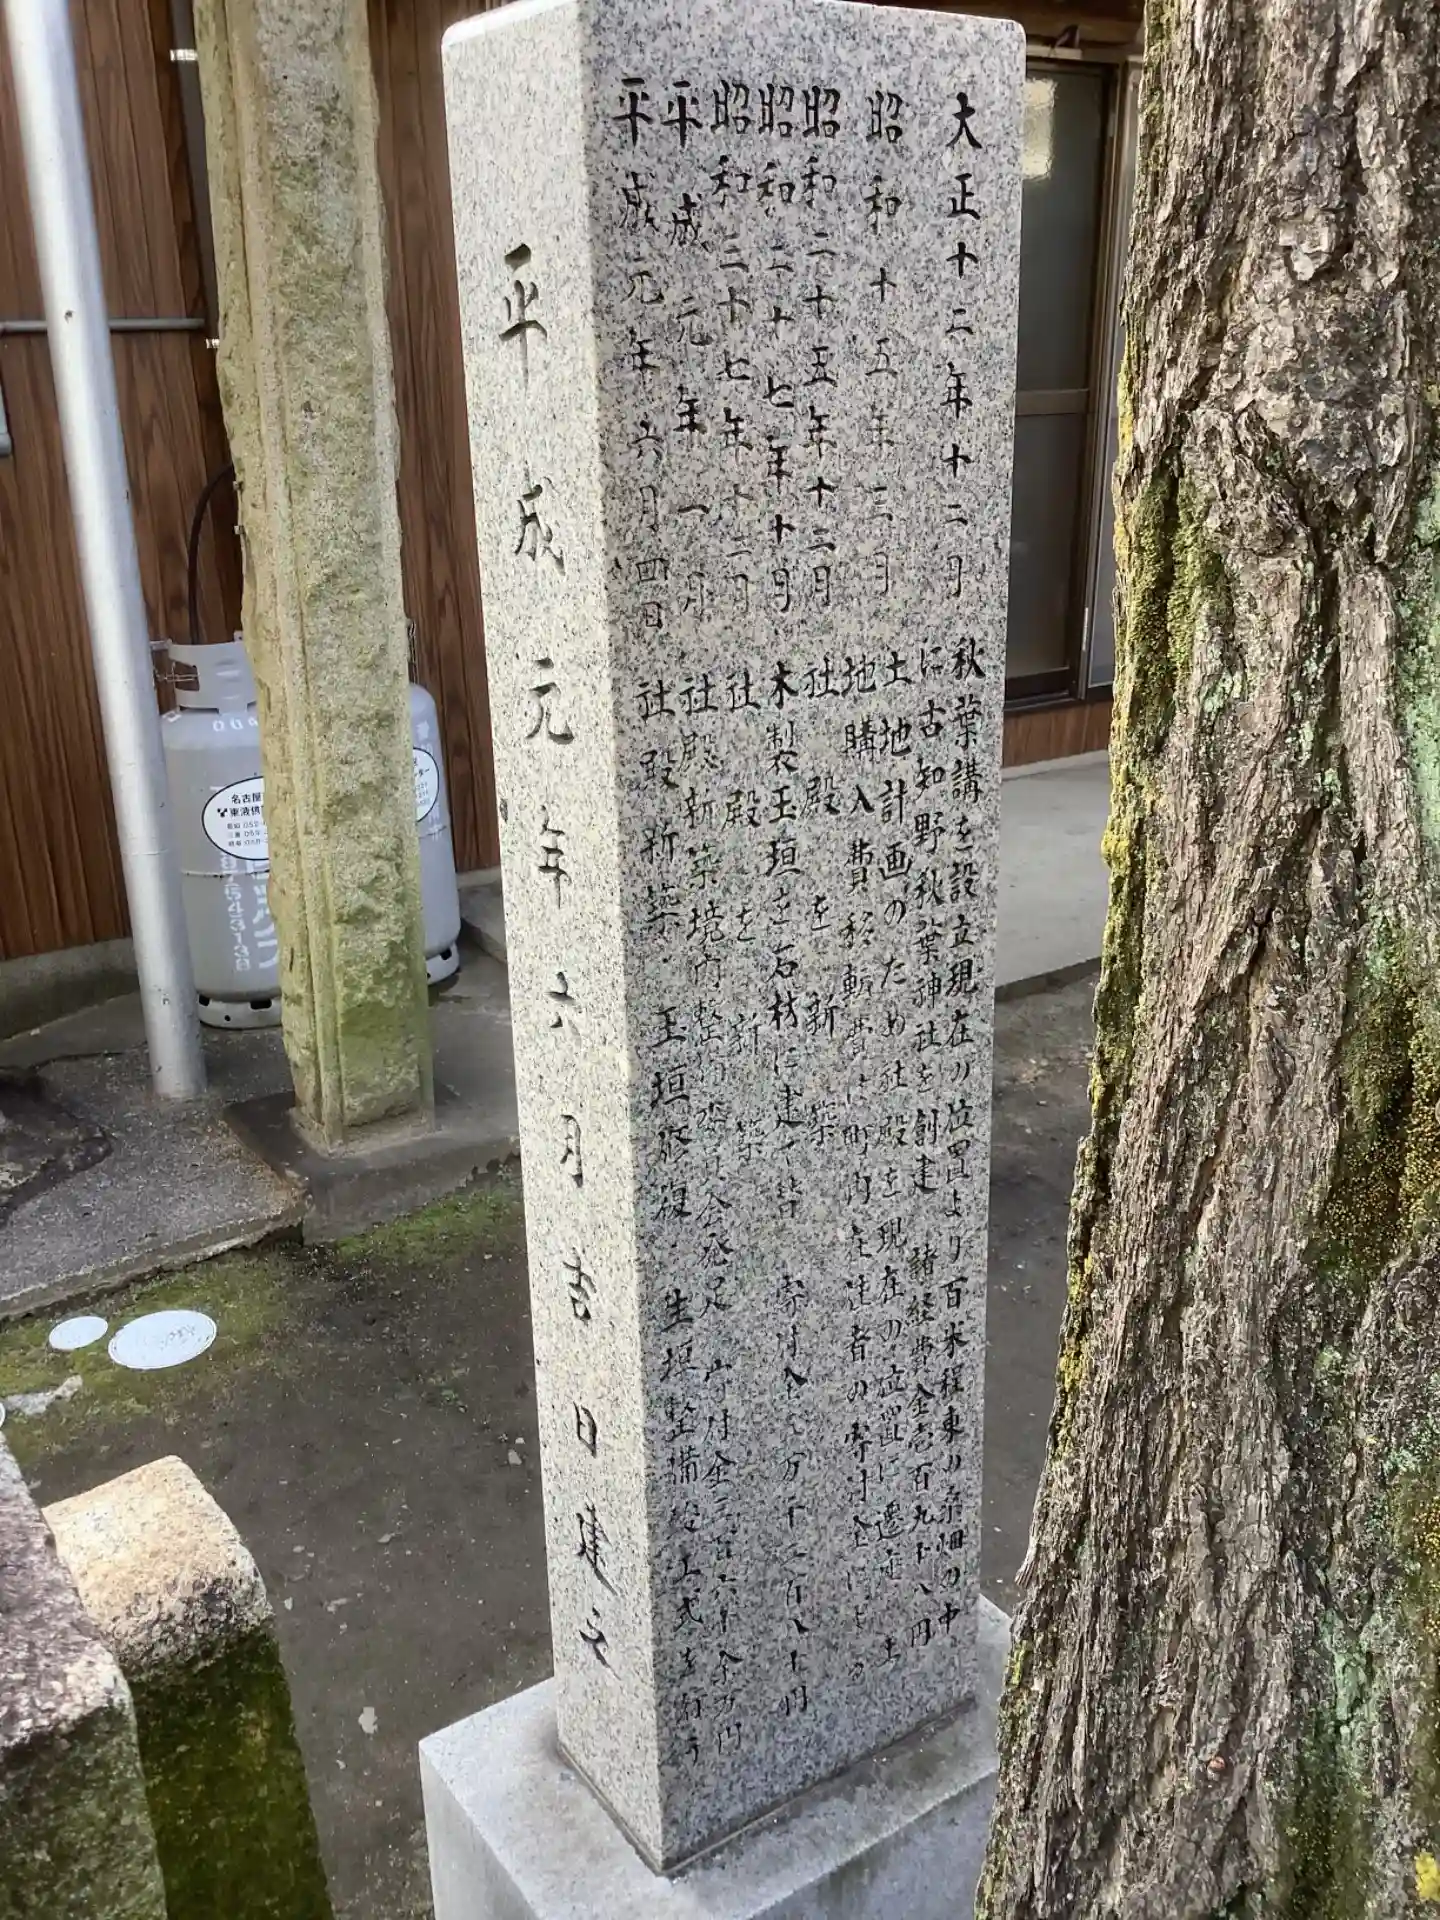 大正十二年十二月 秋葉講を設立現在の位置より百米程東の桑畑の中
に古知野秋葉神社を創建 諸経費金壱百九十八円
昭和十五年三月 土地計画のため社殿を現在の位置に遷座 土
地購入費移転費は町内在住者の寄付金による
昭和二十五年十二月 社殿を新築
昭和二十七年十月 木製玉垣を石材に建て替 寄付金
昭和三十七年十二月 社殿を新築
平成元年一月 社殿新築境内整備委員会発足 寄付金三百六十余万円
平成元年六月四日 社殿新築 玉垣修復 生垣整備竣工式を行う
平成元年六月吉日建之
名古屋
東液供